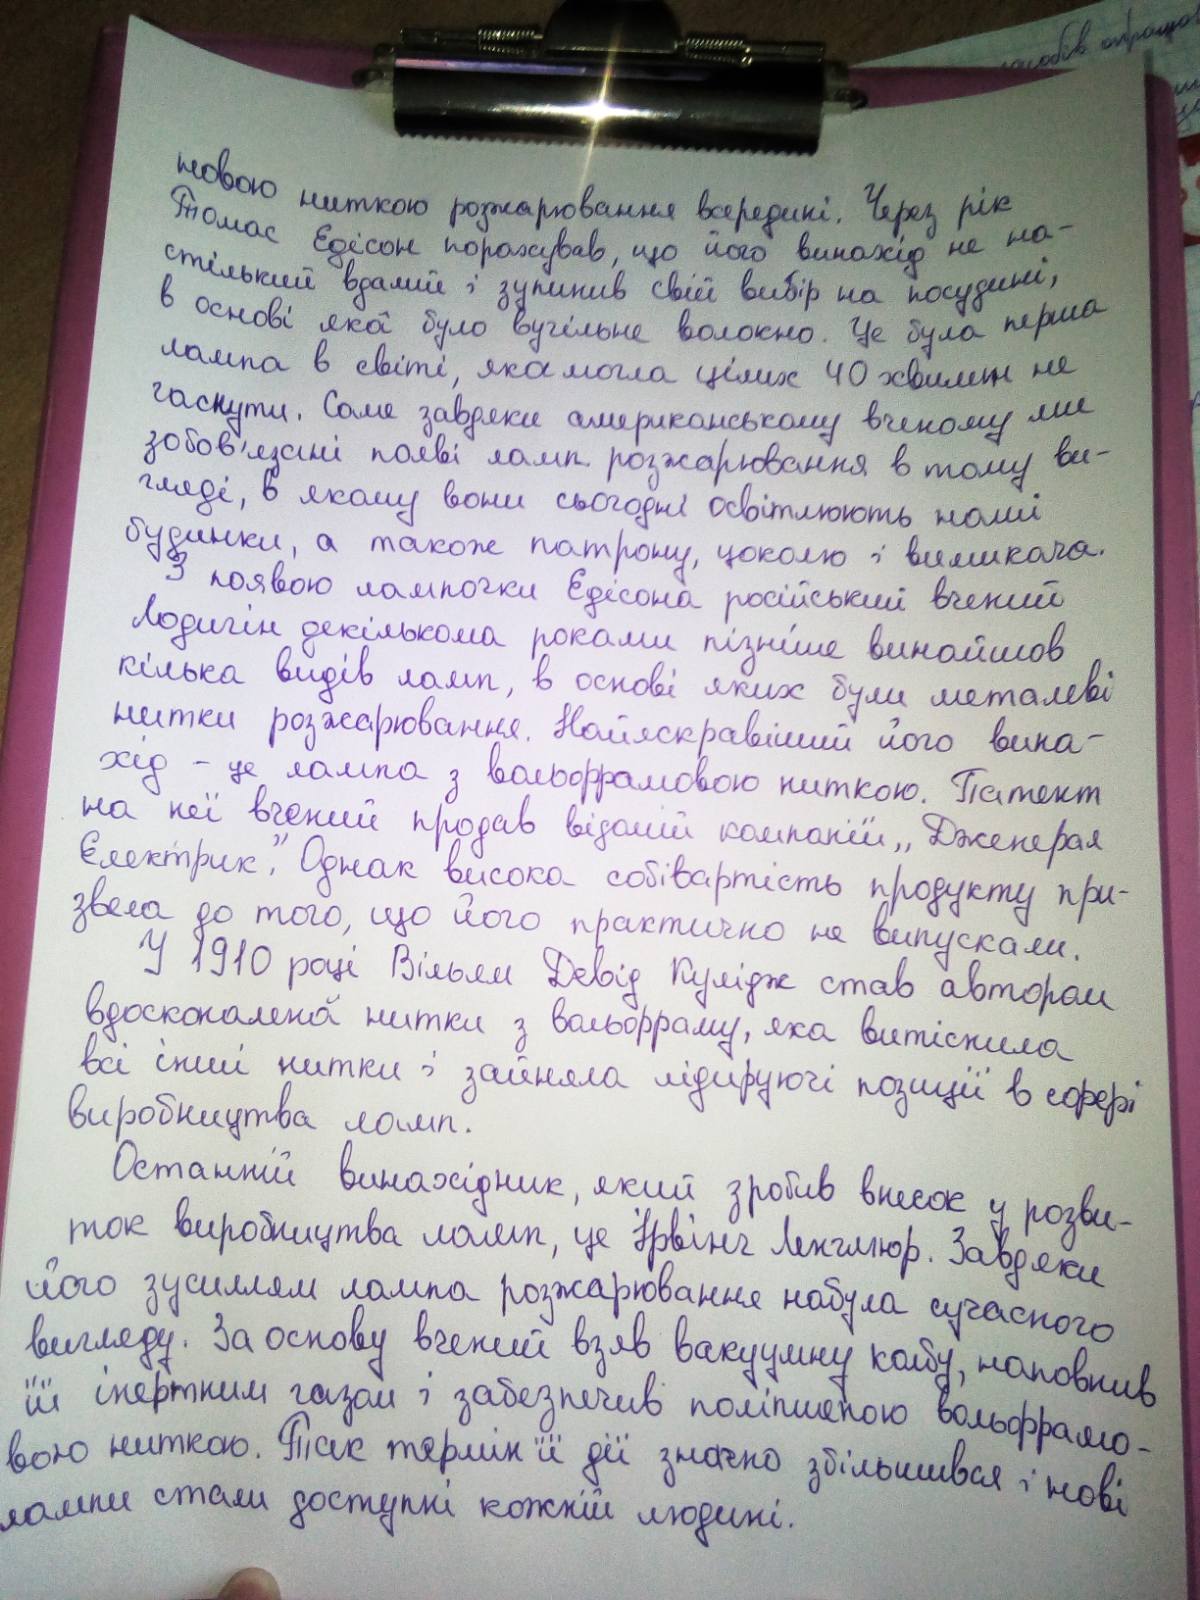 новою ниткою розжарювання всередині. Через рік
Томас Едісон порахував, що його винахід не на-
стільки вдалий і зупинив свій вибір на посудині,
в основі якої було вугільне волокно. Це була перша
лампа в світі, яка могла цілих 40 хвилин не
гаснути. Саме завдяки американському вченому ми
зобов'язані появі ламп розжарювання в тому ви-
гляді, в якому вони сьогодні освітлюють наші
будинки, а також патрону, цоколю і вимикача.
З появою лампочки Едісона російський вчений
Лодигін декількома роками пізніше винайшов
кілька видів ламп, в основі яких були металеві
нитки розжарювання. Найяскравіший його вина-
хід - це лампа з вольфрамовою ниткою. Патент
на неї вчений продав відомій компанії „Дженерал
Електрик". Однак висока собівартість продукту при-
звела до того, що його практично не випускали.
У 1910 році Вільям Девід Кулідж став автором
вдосконаленої нитки з вольфраму, яка витіснила
всі інші нитки і зайняла лідируючі позиції в сфері
виробництва ламп.
Останній винахідник, який зробив внесок у розви-
ток виробництва ламп, це Ірвінг Ленгмюр. Завдяки
його зусиллям лампа розжарювання набула сучасного
вигляду. За основу вчений взяв вакуумну колбу, наповнив
її інертним газом і забезпечив поліпшеною вольфрамо-
вою ниткою. Так термін її дії значно збільшився і нові
лампи стали доступні кожній людині.